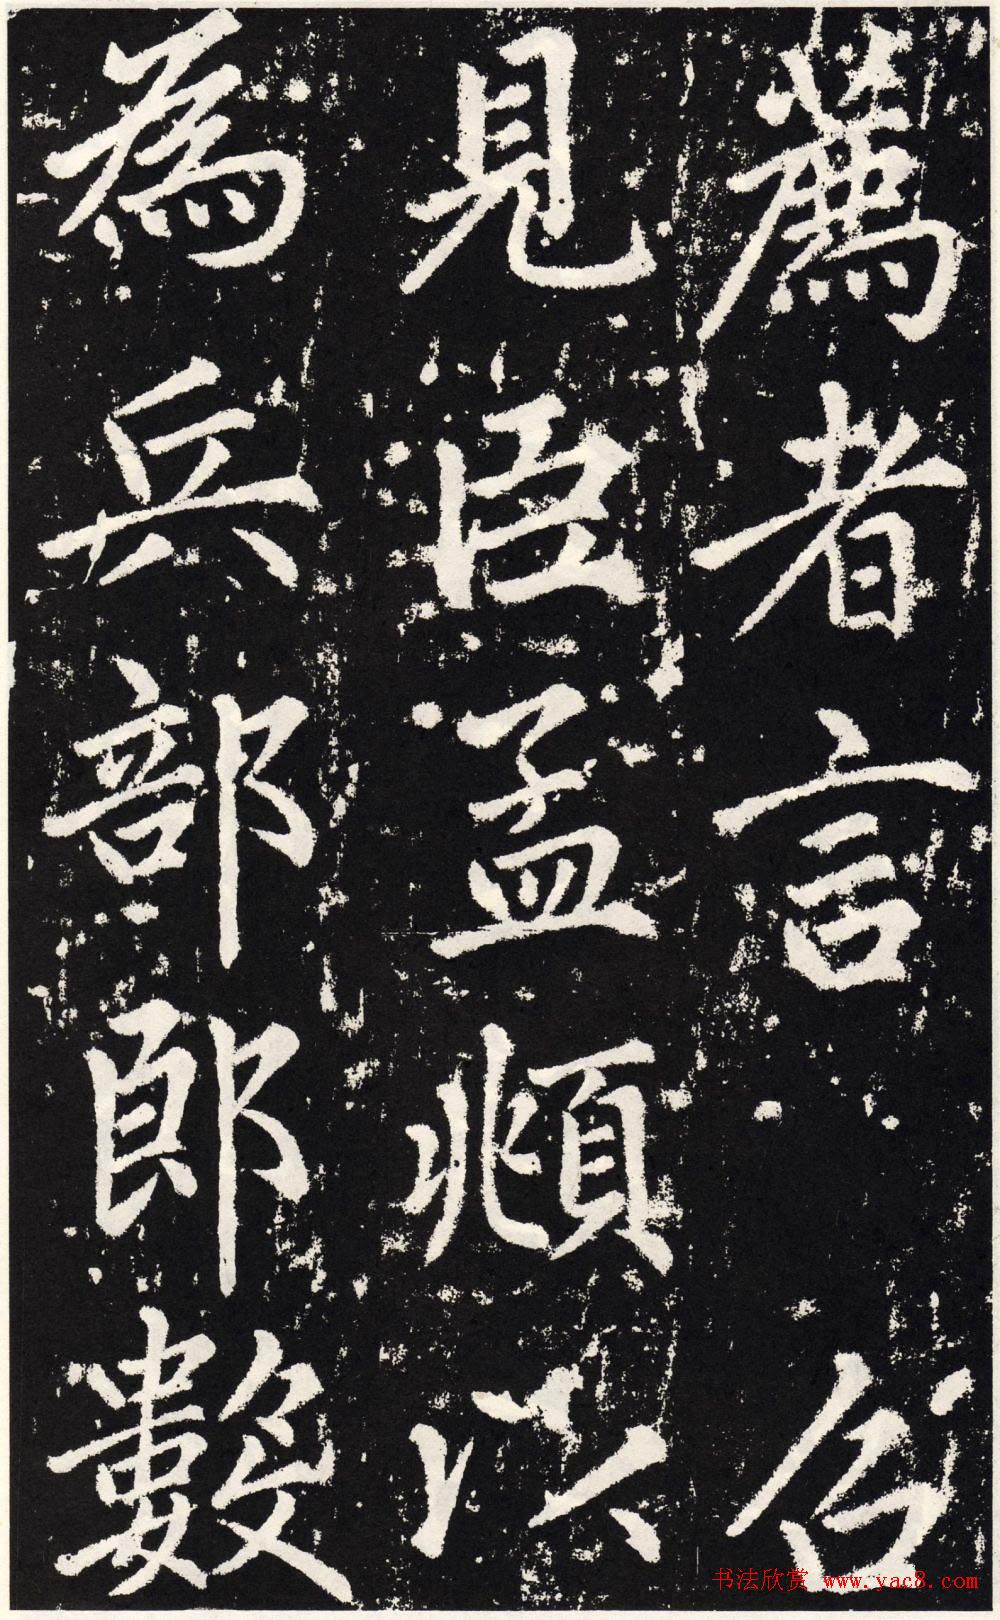 薦者言 召
見臣孟頫以
為兵部郎數
书法欣赏 www.yac8.com